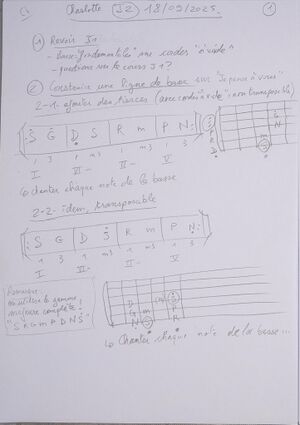 Charlotte J2 18/09/2025. 1
1) Revoir J1
- questions sur le cours J1?
2) Construire une ligne de basse sur "Je pense à vous"
2-1- ajouter des tierces (avec cordes "à vide", non transposable)
S G D S R m P N
1 3 1 m3 1 m3 1 3
I VI- II- V
↳ chanter chaque note de la basse
2-2- idem, transposable
S G D Ṡ R m P N
1 3 1 m3 1 m3 1 3
I VI- II- V
gamme
majeure complète!
"S R G m P D N Ṡ"
D m S
G P
N S R
↳ Chanter chaque note de la basse...